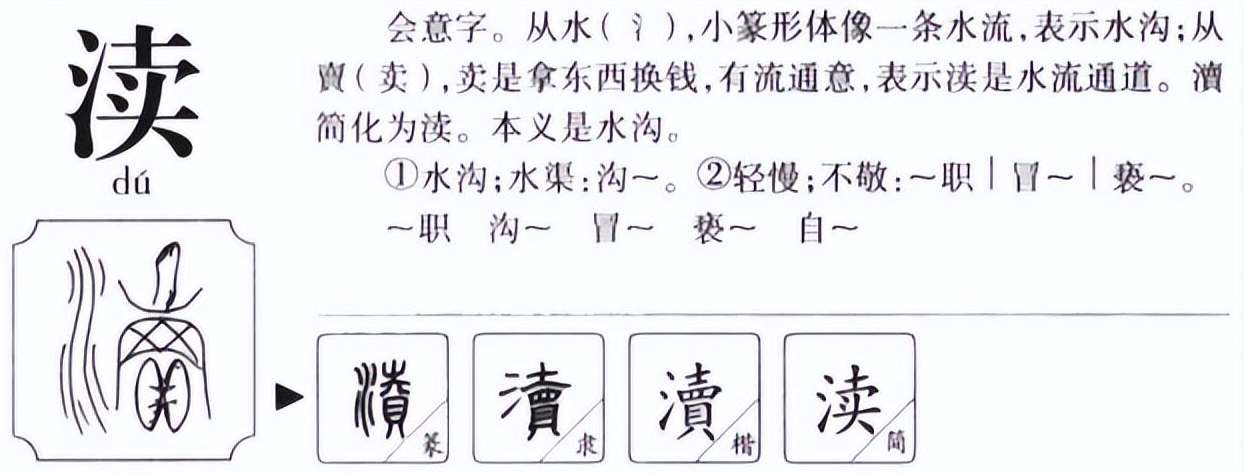 渎
dú
会意字。从水(氵),小篆形体像一条水流,表示水沟;从
賣(卖),卖是拿东西换钱,有流通意,表示渎是水流通道。瀆
简化为渎。本义是水沟。
①水沟;水渠:沟～。②轻慢;不敬:～职｜冒～｜亵～。
～职 沟～ 冒～ 亵～ 自～
瀆 篆
瀆 隶
瀆 楷
渎 简